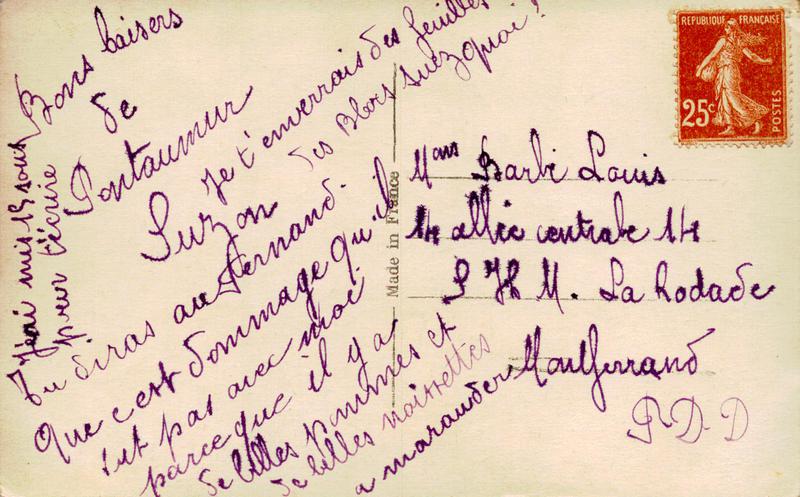 Bons baisers
de
Pontaumur
Suzon
Je t'enverrais des feuilles
des Blocs
quoi!
Tu diras au Fernand.
Que c'est dommage qu'il
soit pas avec moi
parce que il y a
de belles pommes et
de belles noisettes
a marauder
J'ai mis 15 jours
pour t'écrire
Made in France
REPUBLIQUE FRANÇAISE
25c
POSTES
Mans Barbi Louis
14 allée centrale 14
S H M. La Rodade
Montferrand
P.D.D